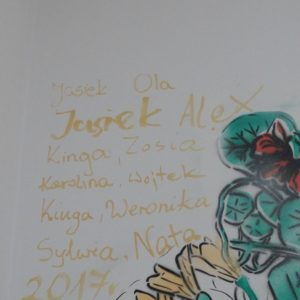 Jasiek Ola
Jasiek Alex
Kinga, Zosia
Karolina, Wojtek
Kinga, Weronika
Sylwia, Nata
2017r